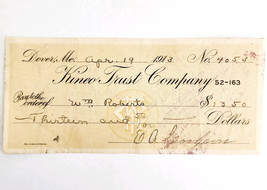 Dover, Me. Apr. 19 1913 No. 4053
Kineo Trust Company 52-163
Pay to the order of Wm Roberts $13.50
Thirteen and 50/100 Dollars